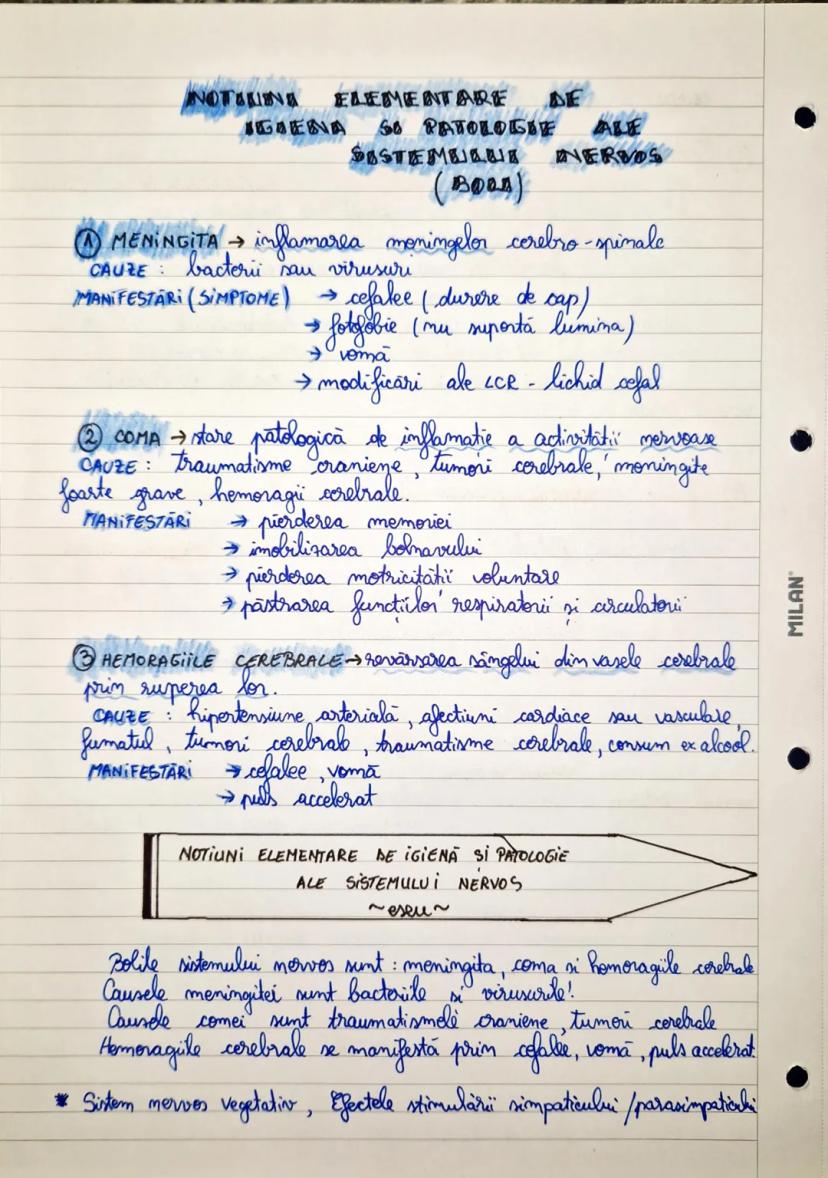 NOTIUNI ELEMENTARE DE
IGIENA SI PATOLOGIE ALE
SISTEMULUI NERVOS
(BOLI)
① MENINGITA → inflamarea meningelor cerebro-spinale
CAUZE : bacterii sau virusuri
MANIFESTĂRI (SIMPTOME) → cefalee (durere de cap)
→ fotofobie (nu suportă lumina)
→ vomă
→ modificări ale LCR - lichid cefal
② COMA → stare patologică de inflamatie a activitătii nervoase
CAUZE : traumatisme craniene, tumori cerebrale, meningite
foarte grave, hemoragii cerebrale.
MANIFESTĂRI → pierderea memoriei
→ imobilizarea bolnavului
→ pierderea motricitătii voluntare
→ păstrarea funcțiilor respiratorii și circulatorii
③ HEMORAGIILE CEREBRALE → revărsarea sângelui din vasele cerebrale
prin ruperea lor.
CAUZE : hipertensiune arterială, afectiuni cardiace sau vasculare,
fumatul, tumori cerebrale, traumatisme cerebrale, consum ex alcool.
MANIFESTĂRI → cefalee, vomă
→ puls accelerat
NOTIUNI ELEMENTARE DE IGIENĂ SI PATOLOGIE
ALE SISTEMULUI NERVOS
~eseu~
Bolile sistemului nervos sunt : meningita, coma si hemoragiile cerebrale
Causele meningitei sunt bacteriile si virusurile!
Causele comei sunt traumatismele craniene, tumori cerebrale
Hemoragiile cerebrale se manifestă prin cefalee, vomă, puls accelerat.
* Sistem nervos vegetativ, Efectele stimulării simpaticului/parasimpaticului
MILAN